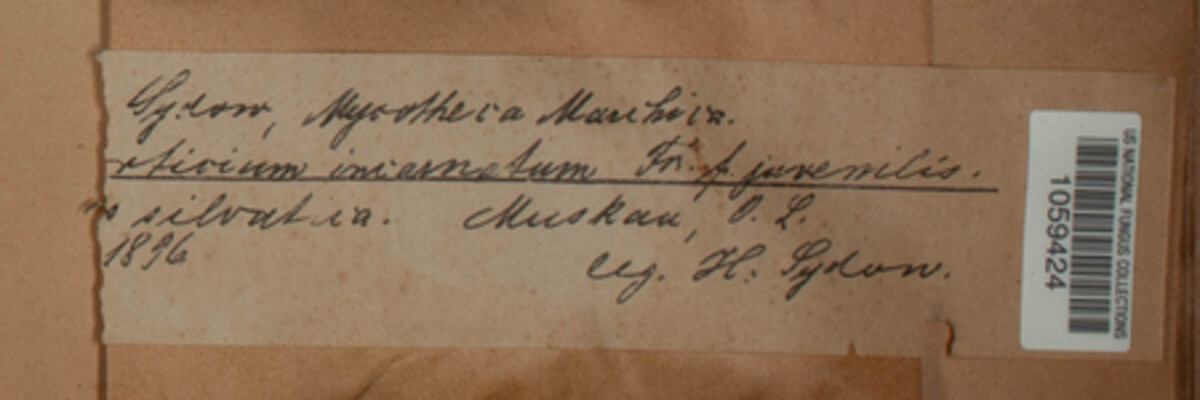 Sydow, Mycotheca Marchica.
rticium incarnatum Fr. f. juvenilis.
s silvatica. Muskau, O. L.
1896
leg. H. Sydow.
US NATIONAL FUNGUS COLLECTIONS
1059424